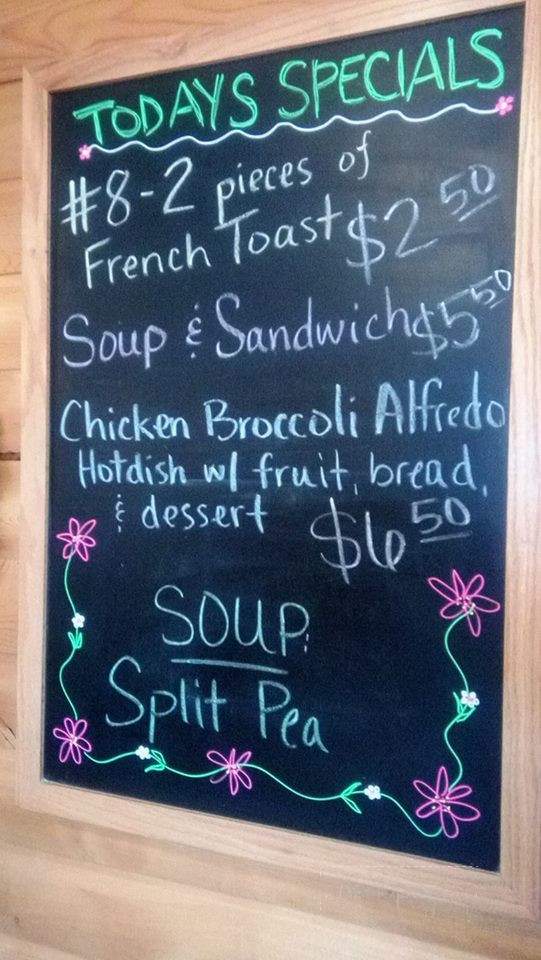 TODAYS SPECIALS
#8-2 pieces of
French Toast $2 50
Soup & Sandwich $5 50
Chicken Broccoli Alfredo
Hotdish w/ fruit, bread,
& dessert $6 50
SOUP:
Split Pea